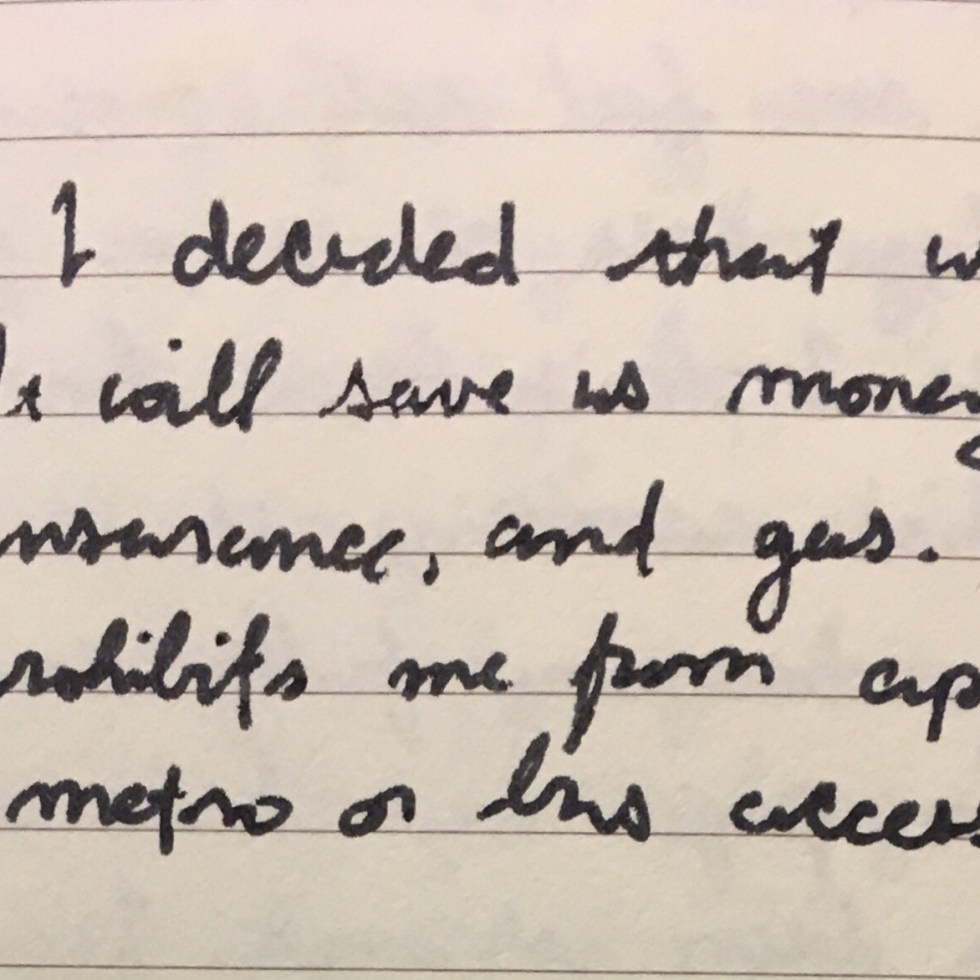 I decided that w
It will save us money
insurance, and gas.
rohibits me from ap
metro or bus access